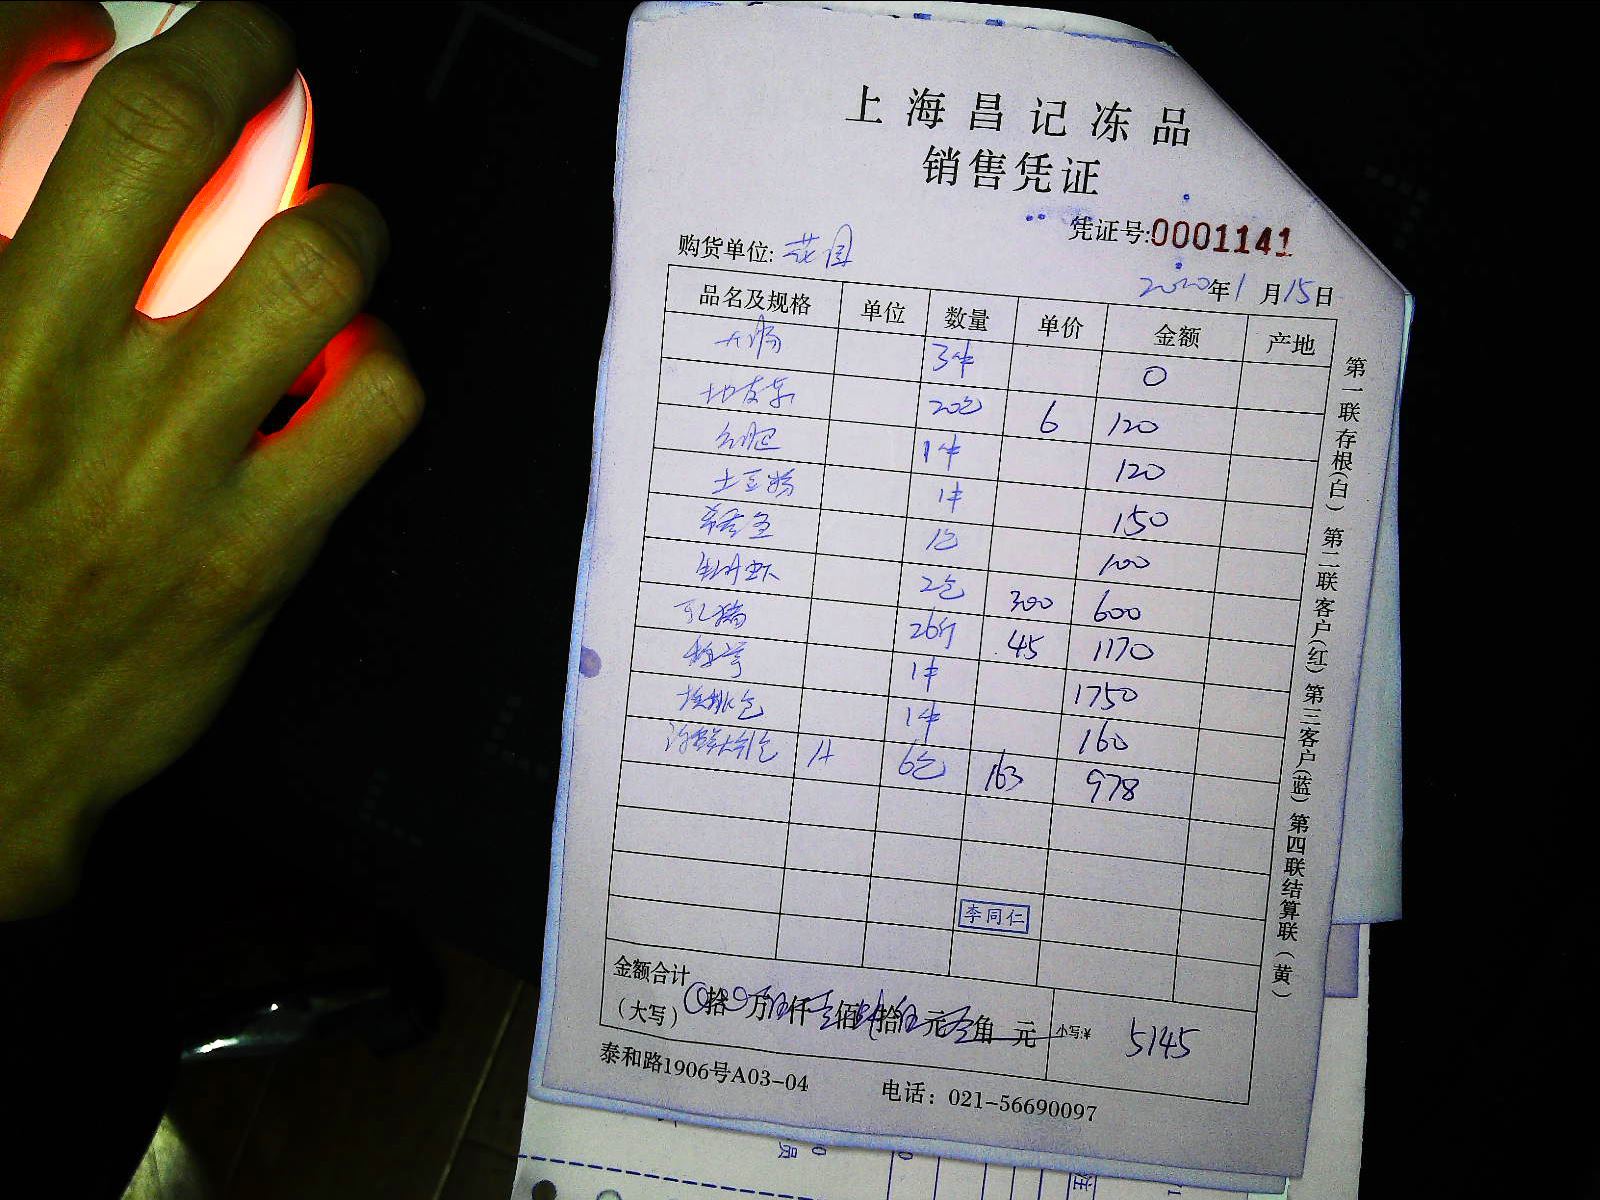 上海昌记冻品
销售凭证
凭证号:0001141
购货单位: 花园
2020年1月15日
品名及规格 单位 数量 单价 金额 产地
大肠 3件 0
20包 6 120
1件 120
土豆粉 1件 150
1包 100
虾 2包 300 600
乳猪 26斤 45 1170
1件 1750
1件 160
A 6包 163 978
李同仁
金额合计
(大写) 0拾0万伍仟壹佰肆拾伍元 角 元 小写:¥ 5145
泰和路1906号A03-04 电话: 021-56690097
第一联存根(白) 第二联客户(红) 第三客户(蓝) 第四联结算联(黄)